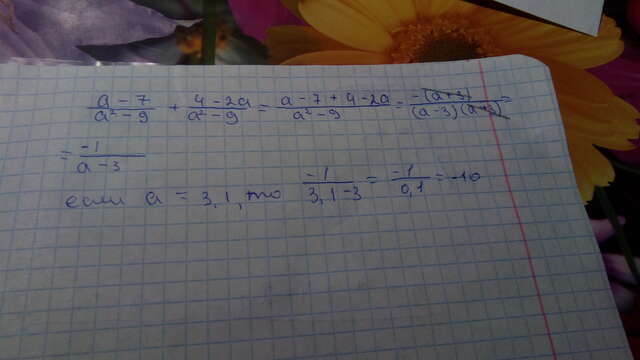 (a - 7)/(a² - 9) + (4 - 2a)/(a² - 9) = (a - 7 + 4 - 2a)/(a² - 9) = -(a + 3)/((a - 3)(a + 3)) =
= -1/(a - 3)
если a = 3,1, то -1/(3,1 - 3) = -1/0,1 = -10